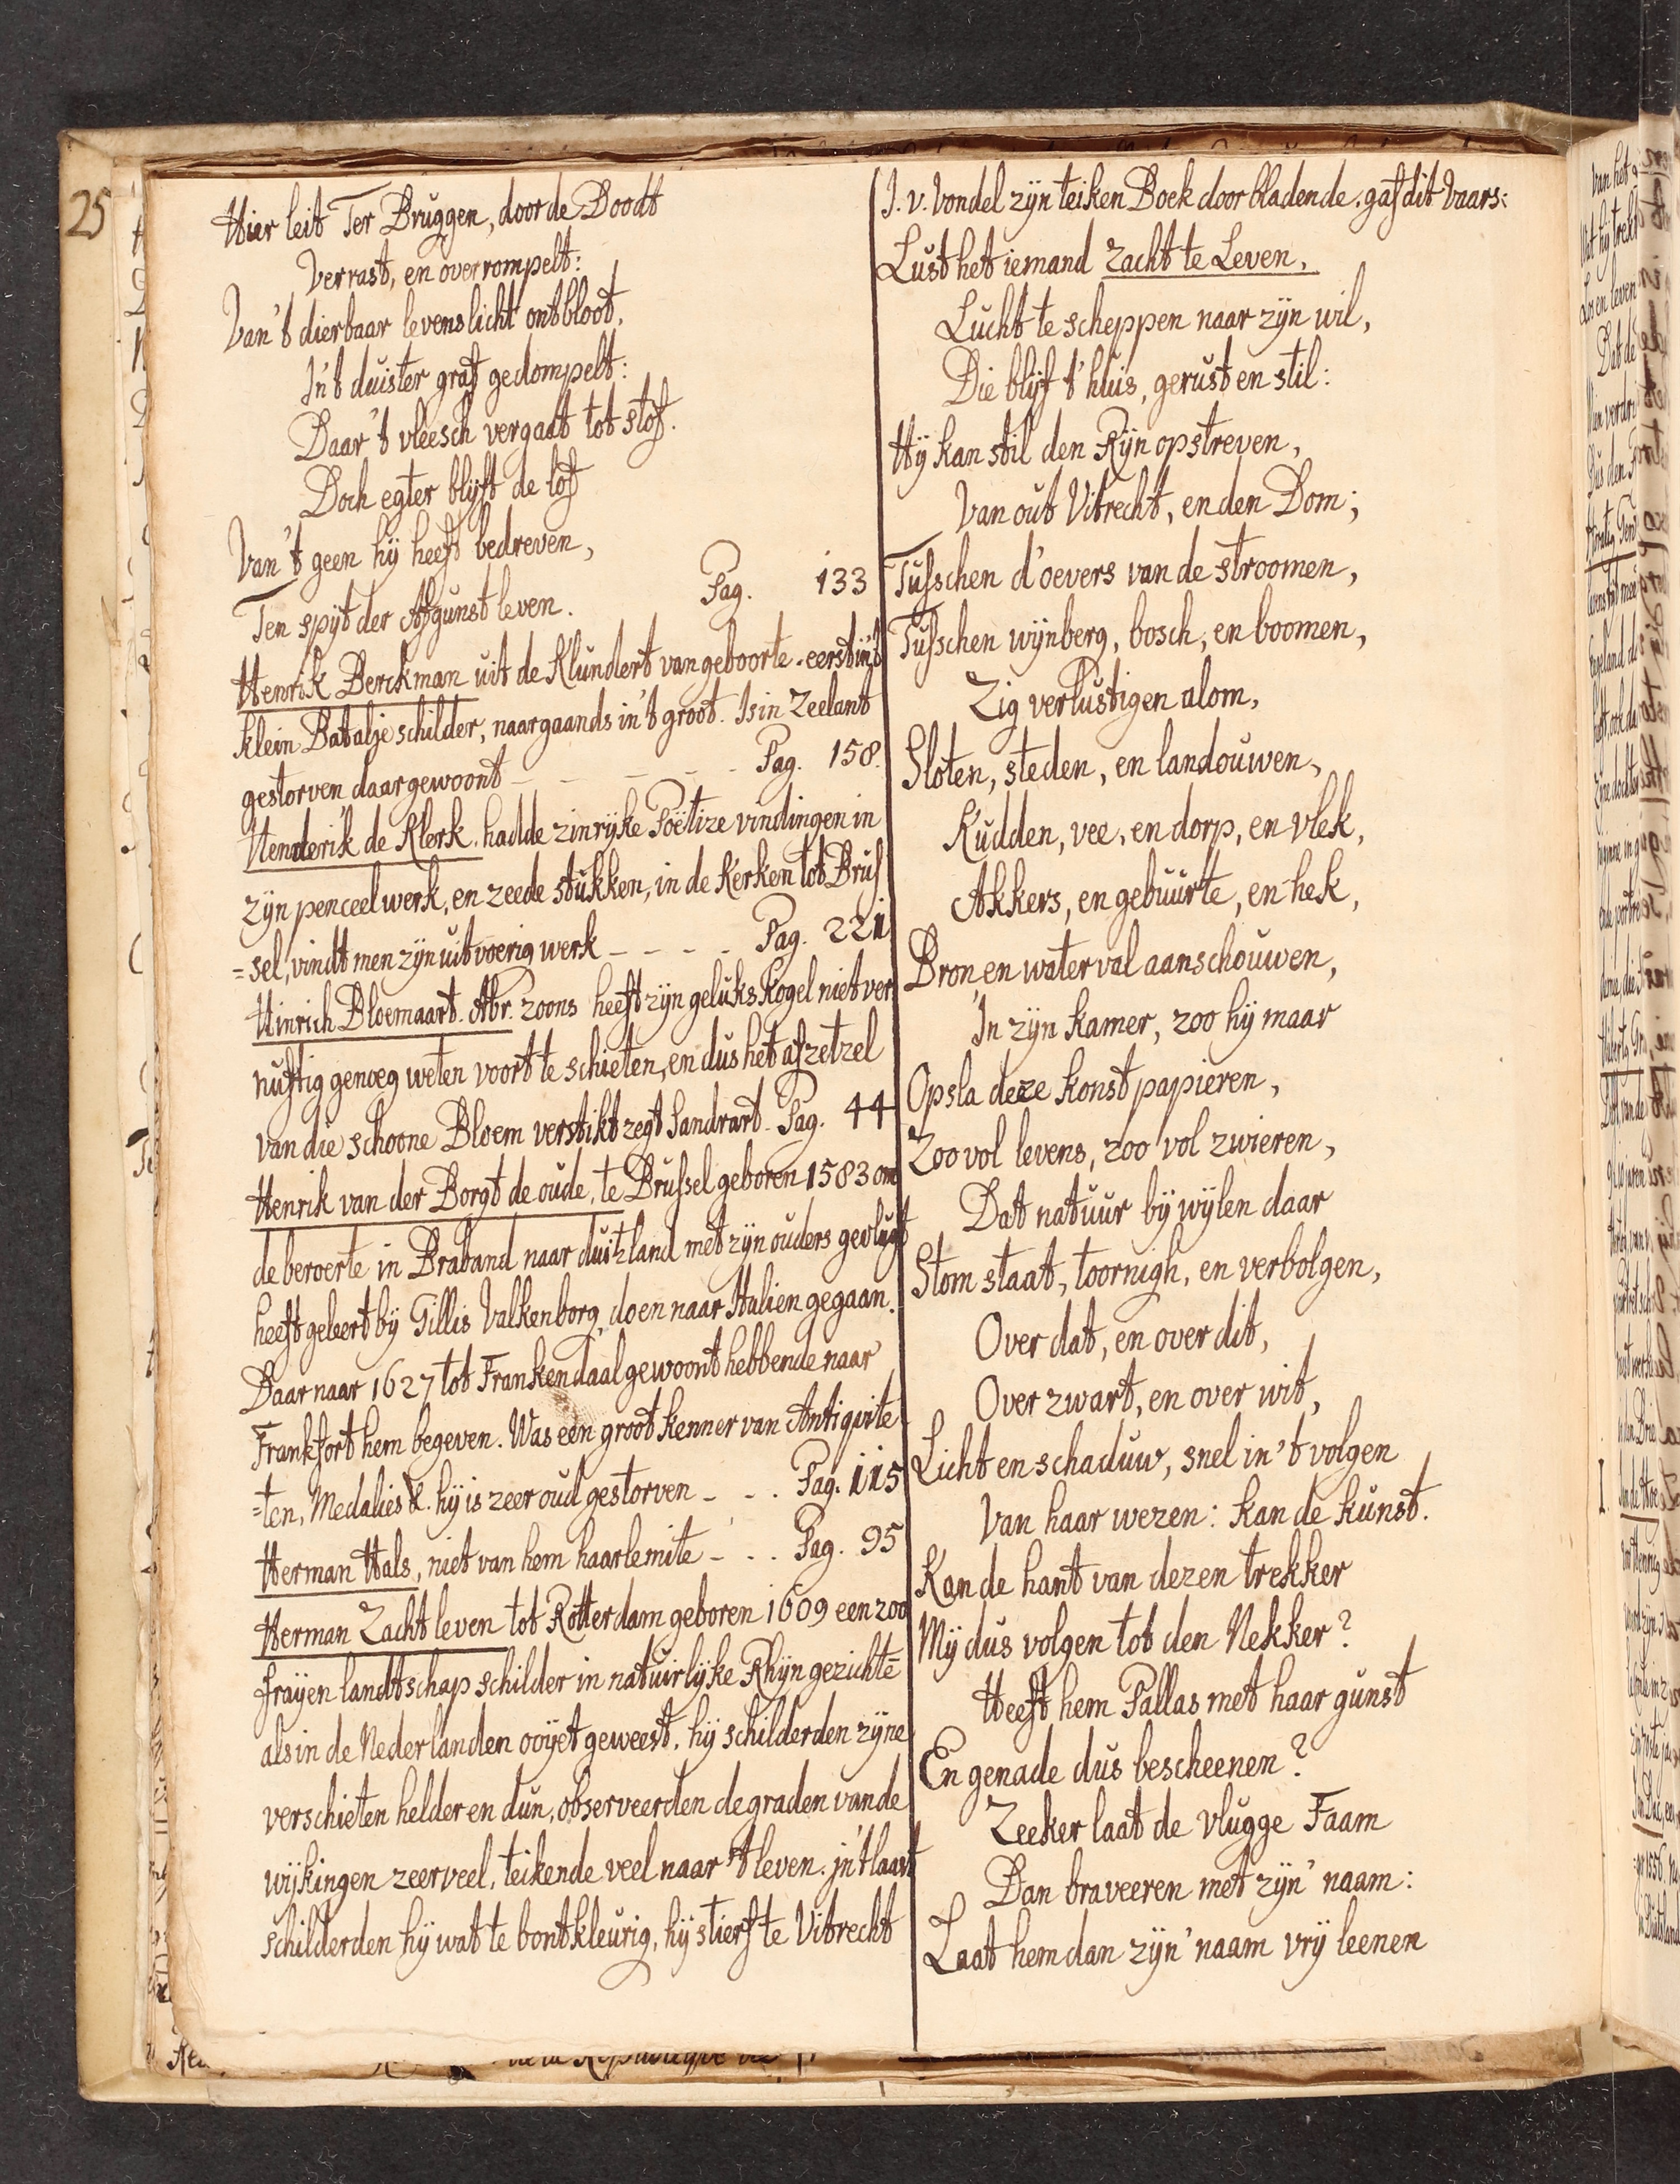 25
Hier leit Ter Bruggen, door de Doodt
Verrast, en overrompelt:
Van 't dierbaar levenslicht ontbloot,
In't duister graf gedompelt:
Daar 't vleesch vergaat tot stof.
Doch egter blijft de lof
Van 't geen hij heeft bedreven,
Ten spijt der Afgunst leven. Pag. 133
Henrik Berckman uit de Klundert van geboorte. eerst in't
klein Batalje schilder, naargaands in't groot. Is in Zeelant
gestorven daar gewoont _ _ _ _ _ Pag. 158.
Henderik de Klerk. hadde zinrijke Poëtize vindingen in
zijn penceel werk, en zeede stukken, in de Kerken tot Brus
=sel, vindt men zijn uitvoerig werk _ _ _ _ Pag. 221
Hinrich Bloemaart. Abr. zoons heeft zijn geluks Kogel niet ver
nuftig genoeg weten voort te schieten, en dus het afzetzel
van die schoone Bloem verstikt zegt Sandrart. Pag. 44
Henrik van der Borgt de oude, te Brussel geboren 1583 om
de beroerte in Braband naar duitzland met zijn ouders gevlugt
heeft geleert bij Gillis Valkenborg, doen naar Italien gegaan.
Daar naar 1627 tot Frankendaal gewoont hebbende naar
Frankfort hem begeven. Was een groot kenner van Antiquite
=ten, Medalies &. hij is zeer oud gestorven _ _ . Pag. 115
Herman Hals, niet van hem haarlemite _ . . Pag. 95
Herman Zacht leven tot Rotterdam geboren 1609 een zoo
frayen landtschap schilder in natuirlijke Rhijn gezichtē
als in de Nederlanden ooijet geweest. hij schilderden zijne
verschieten helder en dun, observeerden de graden van de
wijkingen zeer veel, teikende veel naar 't leven. jn't laast
schilderden hij wat te bont kleurig, hij stierf te Vitrecht
J. v. Vondel zijn teiken Boek door bladende. gaf dit Vaars:
Lust het iemand zacht te Leven,
Lucht te scheppen naar zijn wil,
Die blijf t'huis, gerust en stil:
Hij kan stil den Rijn opstreven,
Van out Vitrecht, en den Dom;
Tusschen d'oevers van de stroomen,
Tusschen wijnberg, bosch, en boomen,
Zig verlustigen alom,
Sloten, steden, en landouwen,
Kudden, vee, en dorp, en vlek,
Akkers, en gebuurte, en hek,
Bron, en waterval aanschouwen,
In zijn kamer, zoo hij maar
Opsla deze konst papieren,
Zoo vol levens, zoo vol zwieren,
Dat natuur bij wijlen daar
Stom staat, toornigh, en verbolgen,
Over dat, en over dit,
Over zwart, en over wit,
Licht en schaduw, snel in't volgen
Van haar wezen: kan de kunst.
Kan de hant van dezen trekker
Mij dus volgen tot den Nekker?
Heeft hem Pallas met haar gunst
En genade dus bescheenen?
Zeeker laat de vlugge Faam
Dan braveeren met zijn' naam:
Laat hem dan zijn' naam vrij leenen